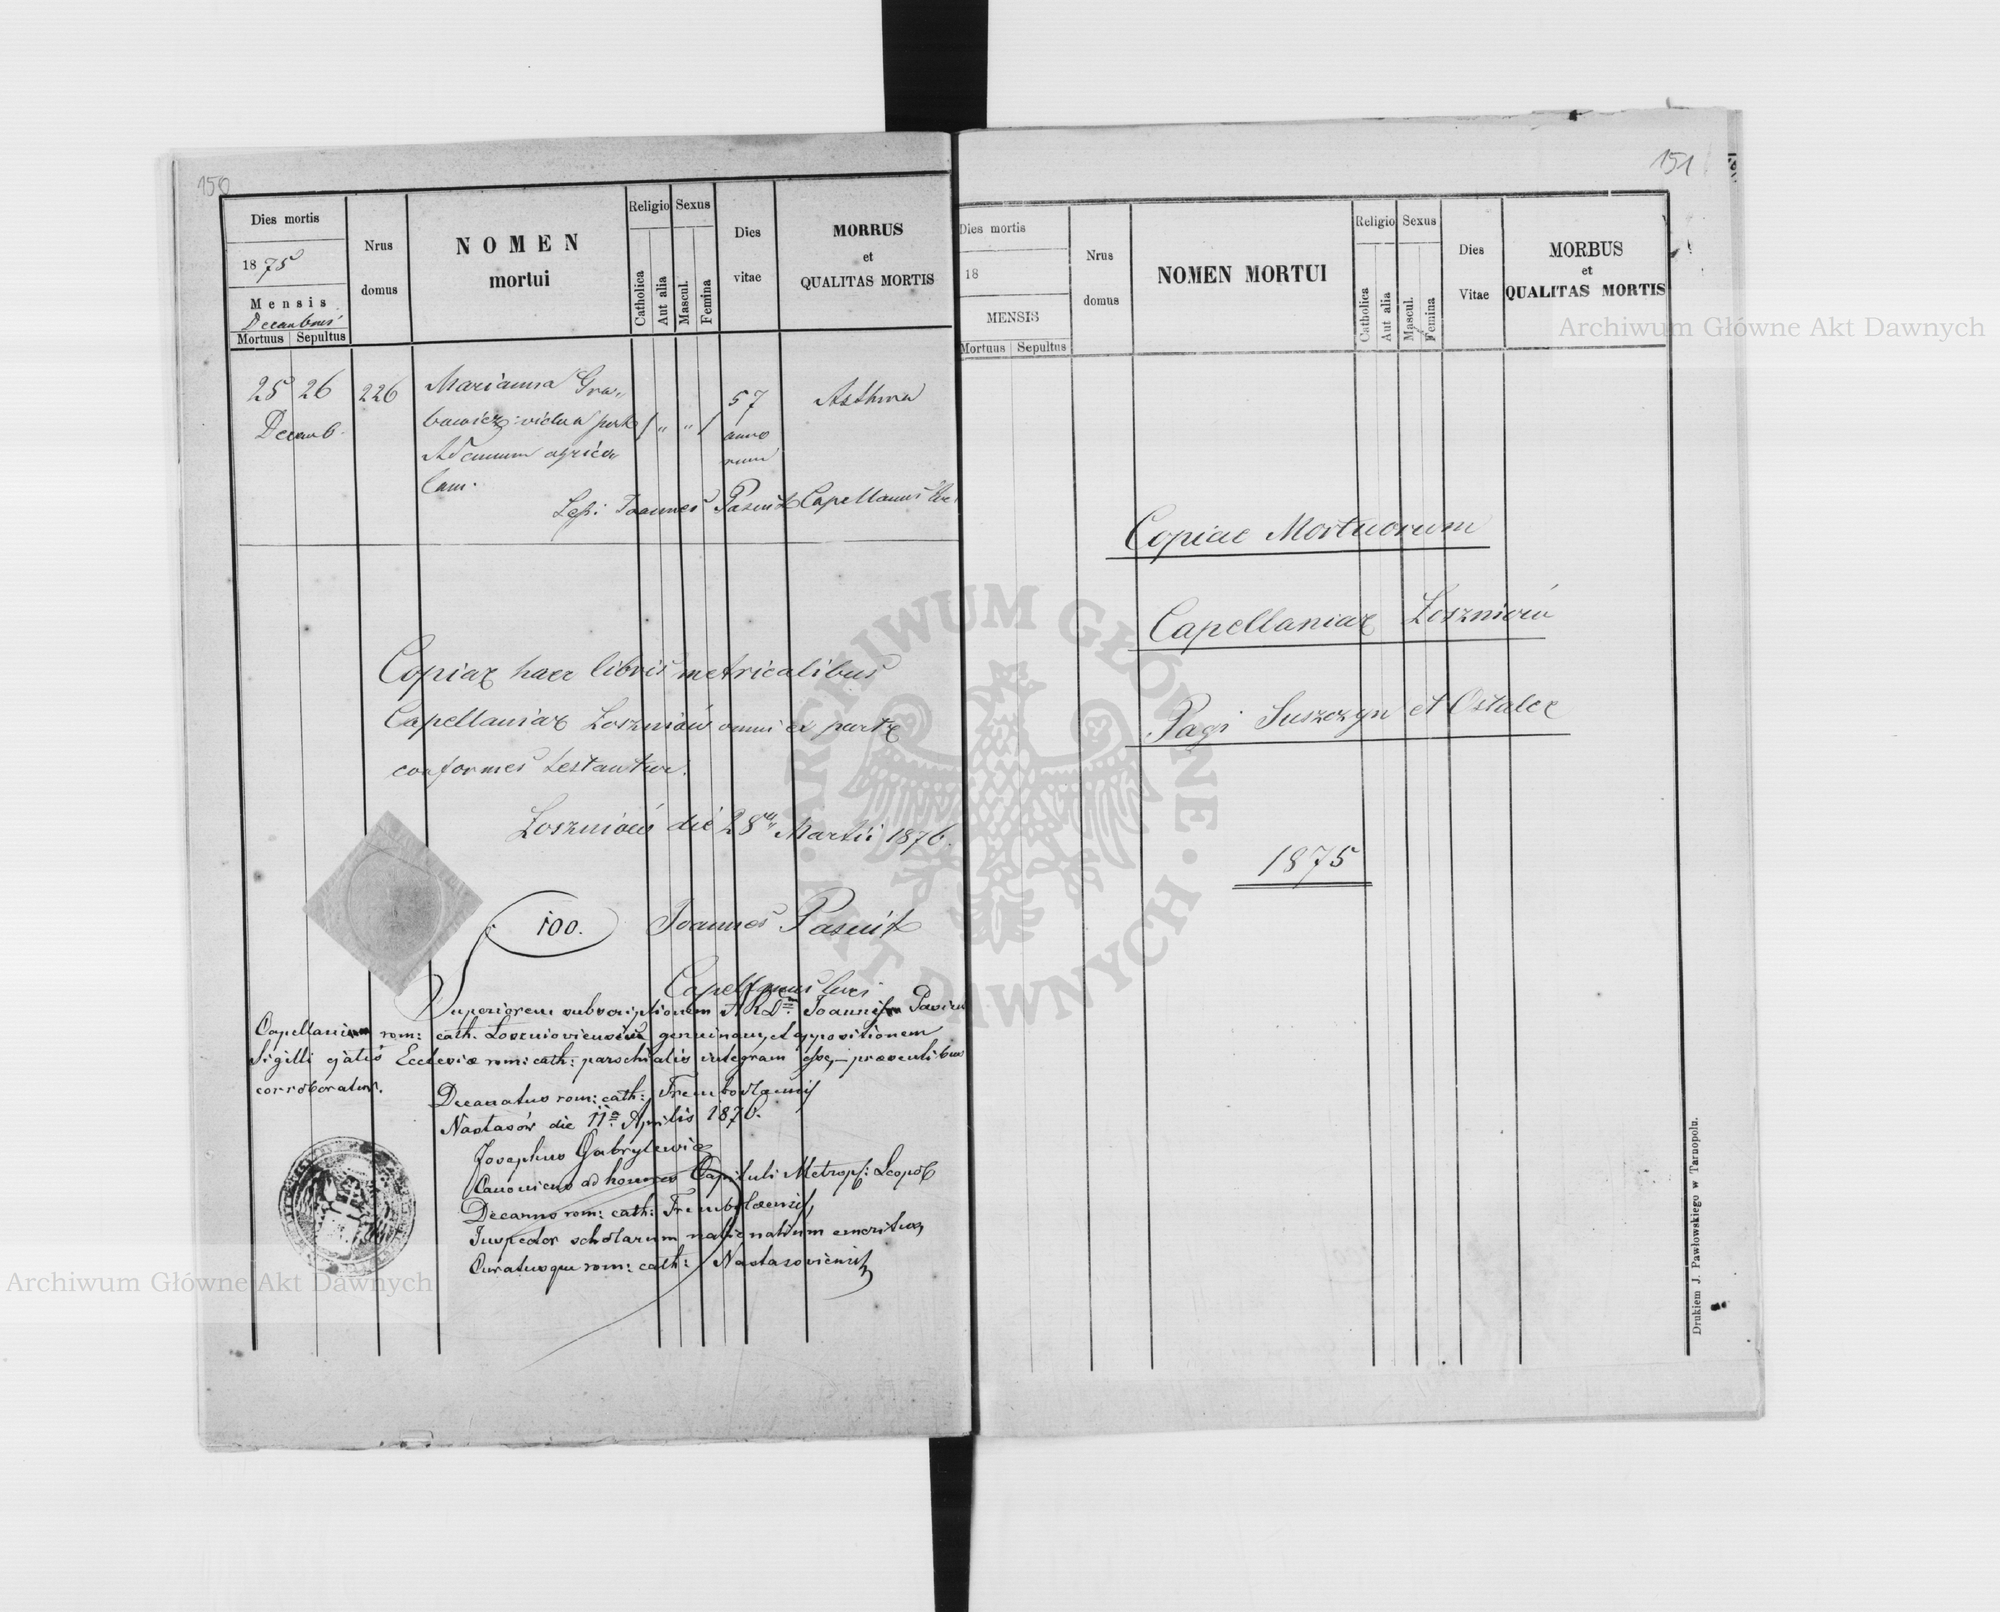 150
Dies mortis
1875
Mensis
Decembris
Mortuus Sepultus
Nrus
domus
NOMEN
mortui
Religio
Catholica
Aut alia
Sexus
Mascul.
Femina
Dies
vitae
MORRUS
et
QUALITAS MORTIS
25 26 226 Marianna Gra„ 57 Asthma
Decemb. bowicz: vidua post / „ „ / anno
Adamum agrico„ rum
lam.
Sep: Joannes Capellanus
Copiae haec libris metricalibus
Capellaniae Łoszniów omni ex parte
conformes testantur.
Łoszniów die 28 Martii 1876.
100. Joannes
Capellanus loci
Superiorem subscriptionem Joannis
Capellani rom: cath. Loszniowiensis genuinam, et appositionem
Sigilli Ecclesiæ rom: cath: parochialis integram præsentibus
corroboratur.
Decanatus rom: cath: Trembowlensis
Nastasów die 11a Aprilis 1876.
Josephus Gabrylewicz
Canonicus ad honores Capituli Metrop: Leopol
Decanus rom: cath: Trembowlensis,
Inspector scholarum nationalium emeritus,
Curatusque rom: cath: Nastasoviensis
151
Dies mortis
18
MENSIS
Mortuus Sepultus
Nrus
domus
NOMEN MORTUI
Religio
Catholica
Aut alia
Sexus
Mascul.
Femina
Dies
Vitae
MORBUS
et
QUALITAS MORTIS
Copiae Mortuorum
Capellaniae Łoszniów
Pagi Suszczyn et Ostalce
1875
Drukiem J. Pawłowskiego w Tarnopolu.
Archiwum Główne Akt Dawnych
ARCHIWUM GŁÓWNE AKT DAWNYCH
Archiwum Główne Akt Dawnych